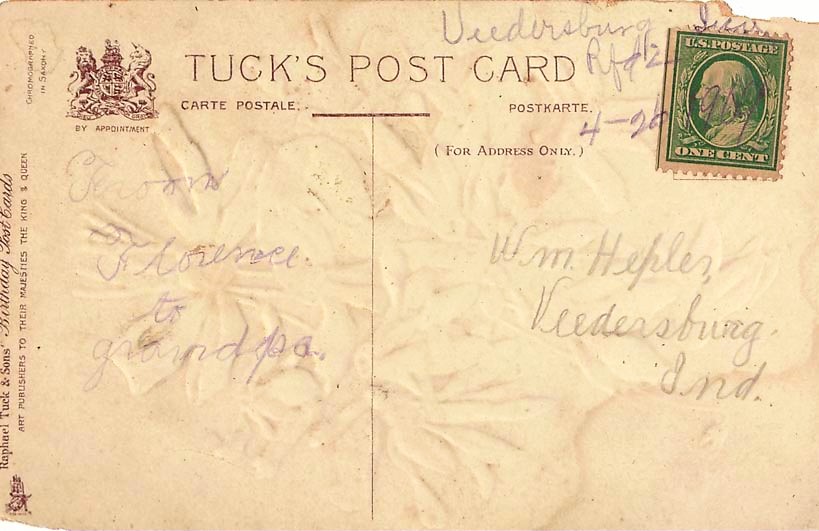 Veedersburg
Rfd2
4-26
U.S. POSTAGE
ONE CENT
TUCK'S POST CARD
CARTE POSTALE.
POSTKARTE.
BY APPOINTMENT
(FOR ADDRESS ONLY.)
CHROMOGRAPHED
IN SAXONY
Raphael Tuck & Sons' "Birthday Post Cards
ART PUBLISHERS TO THEIR MAJESTIES THE KING & QUEEN
From
Florence
to
grandpa.
Wm. Hepler,
Veedersburg.
Ind.